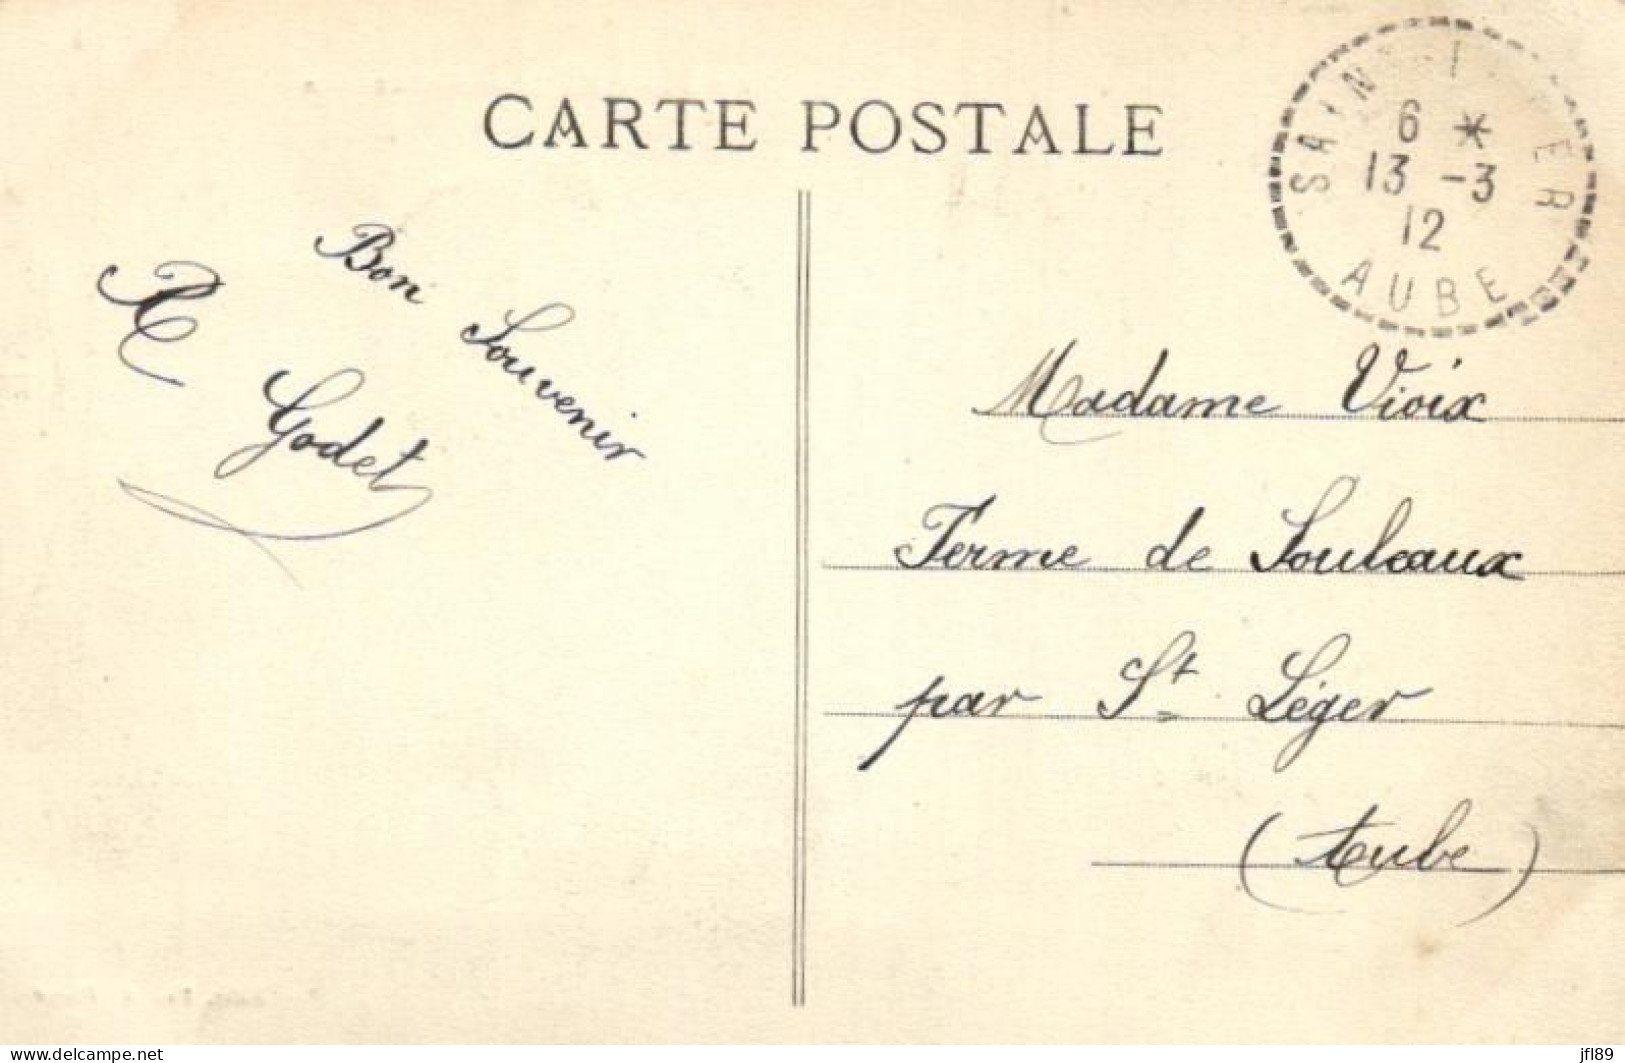 CARTE POSTALE
6 *
13 -3
12
AUBE
Bon Souvenir
R Godet
Madame Vioix
Ferme de Souleaux
par St Léger
(Aube)
delcampe.net
jfl89